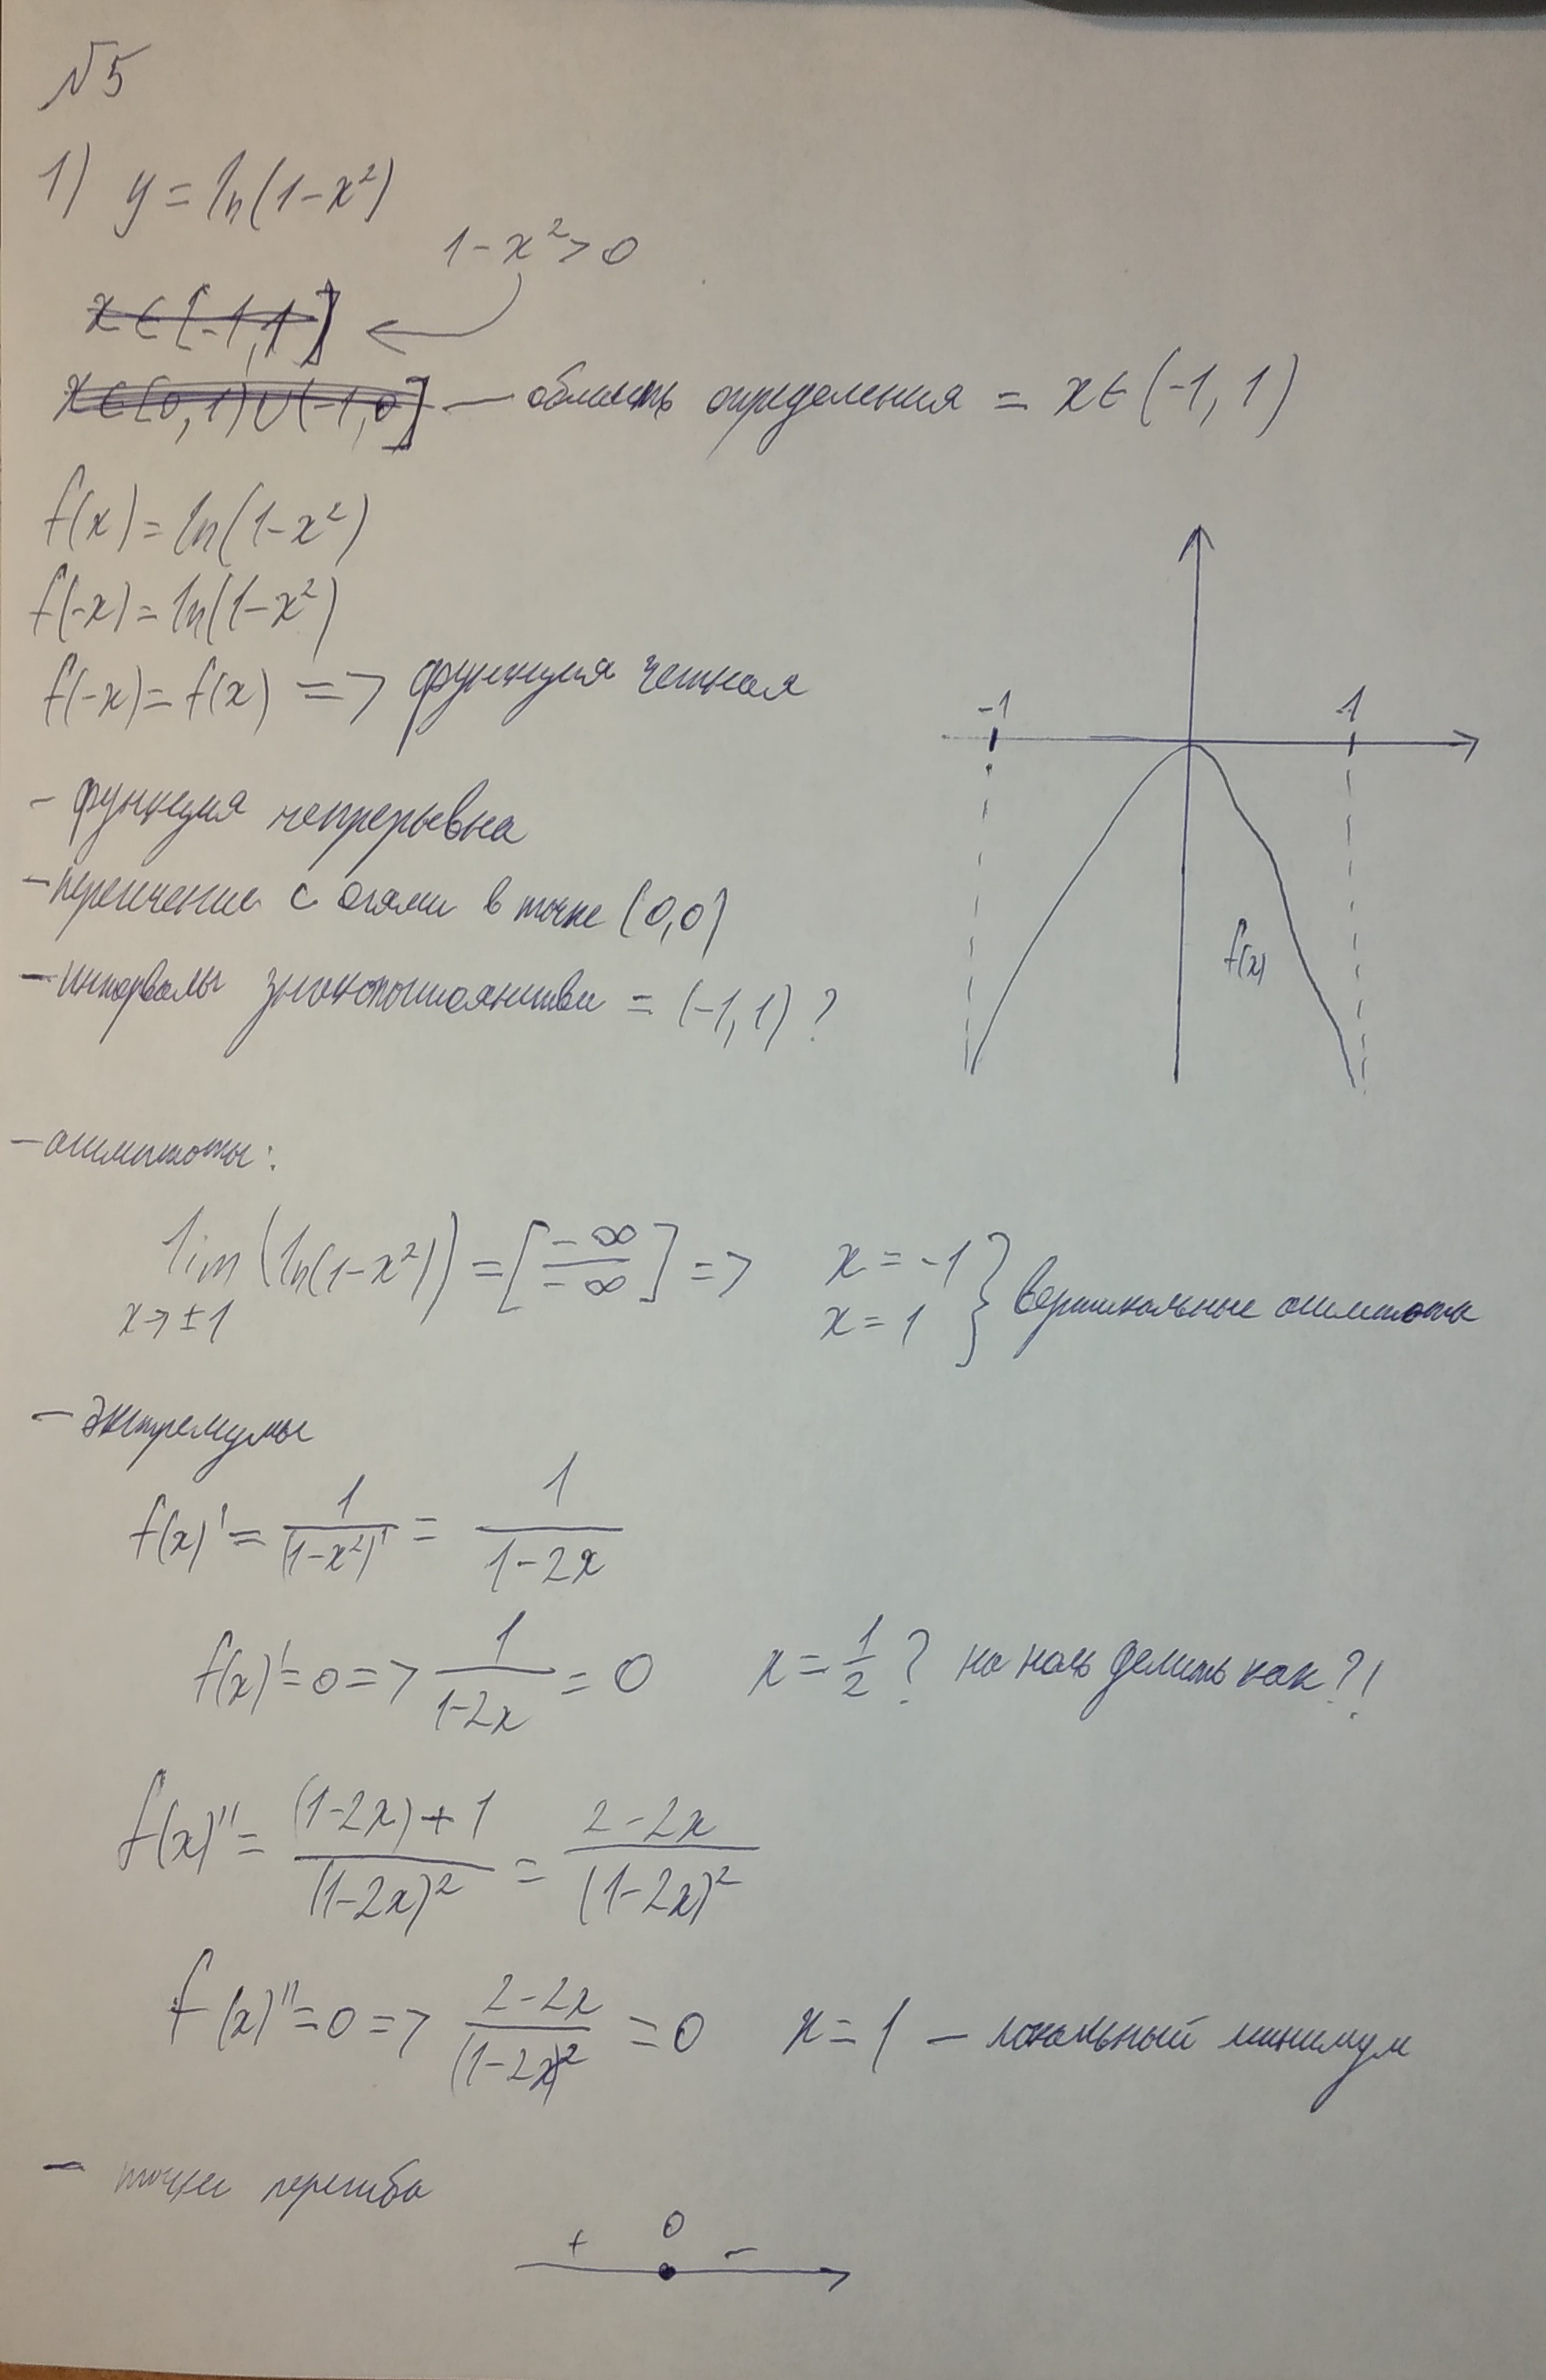 №5
1) y = ln(1-x²)
1-x² > 0
x ∈ [-1, 1]
x ∈ [0, 1) ∪ (-1, 0] — область определения = x ∈ (-1, 1)
f(x) = ln(1-x²)
f(-x) = ln(1-x²)
f(-x) = f(x) => функция четная
-1 1
f(x)
- функция непрерывна
- пересечение с осями в точке (0,0)
- интервалы знакопостоянства = (-1, 1) ?
- асимптоты:
lim (ln(1-x²)) = [-∞/-∞] => x = -1 } вертикальные асимптоты
x→±1 x = 1
- экстремумы
f(x)' = 1/(1-x²)' = 1/(1-2x)
f(x)' = 0 => 1/(1-2x) = 0 x = 1/2 ? на ноль делить как?!
f(x)'' = ((1-2x)+1)/(1-2x)² = (2-2x)/(1-2x)²
f(x)'' = 0 => (2-2x)/(1-2x)² = 0 x = 1 — локальный минимум
- точки перегиба
+ 0 -